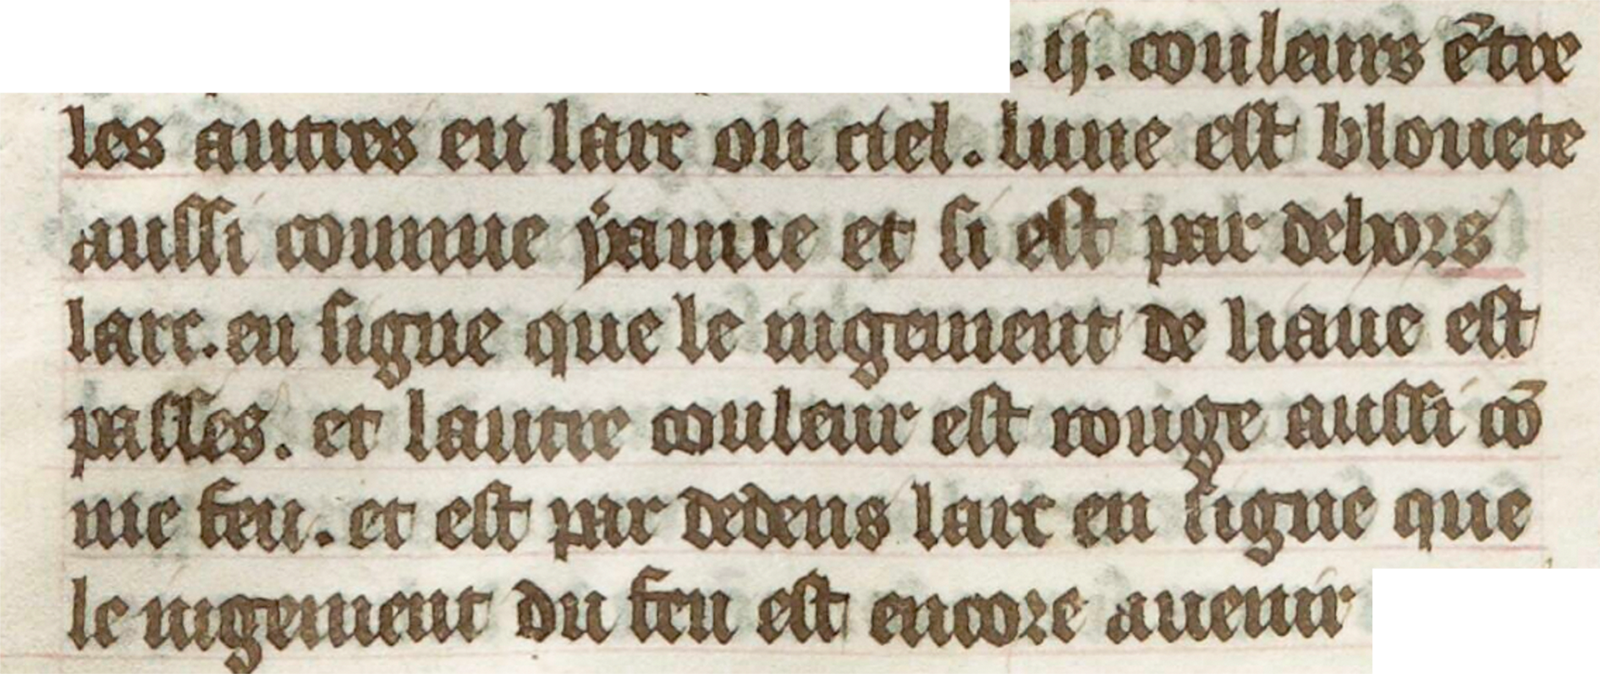 . ij. couleurs ēt̾re
les autres en larc ou ciel. lune est blouete
aussi comme yaune et si est par dehors
larc. en signe que le iugement de liaue est
passes. et lautre couleur est rouge aussi cō
me feu. et est par dedens larc en signe que
le iugement du feu est encore auenir